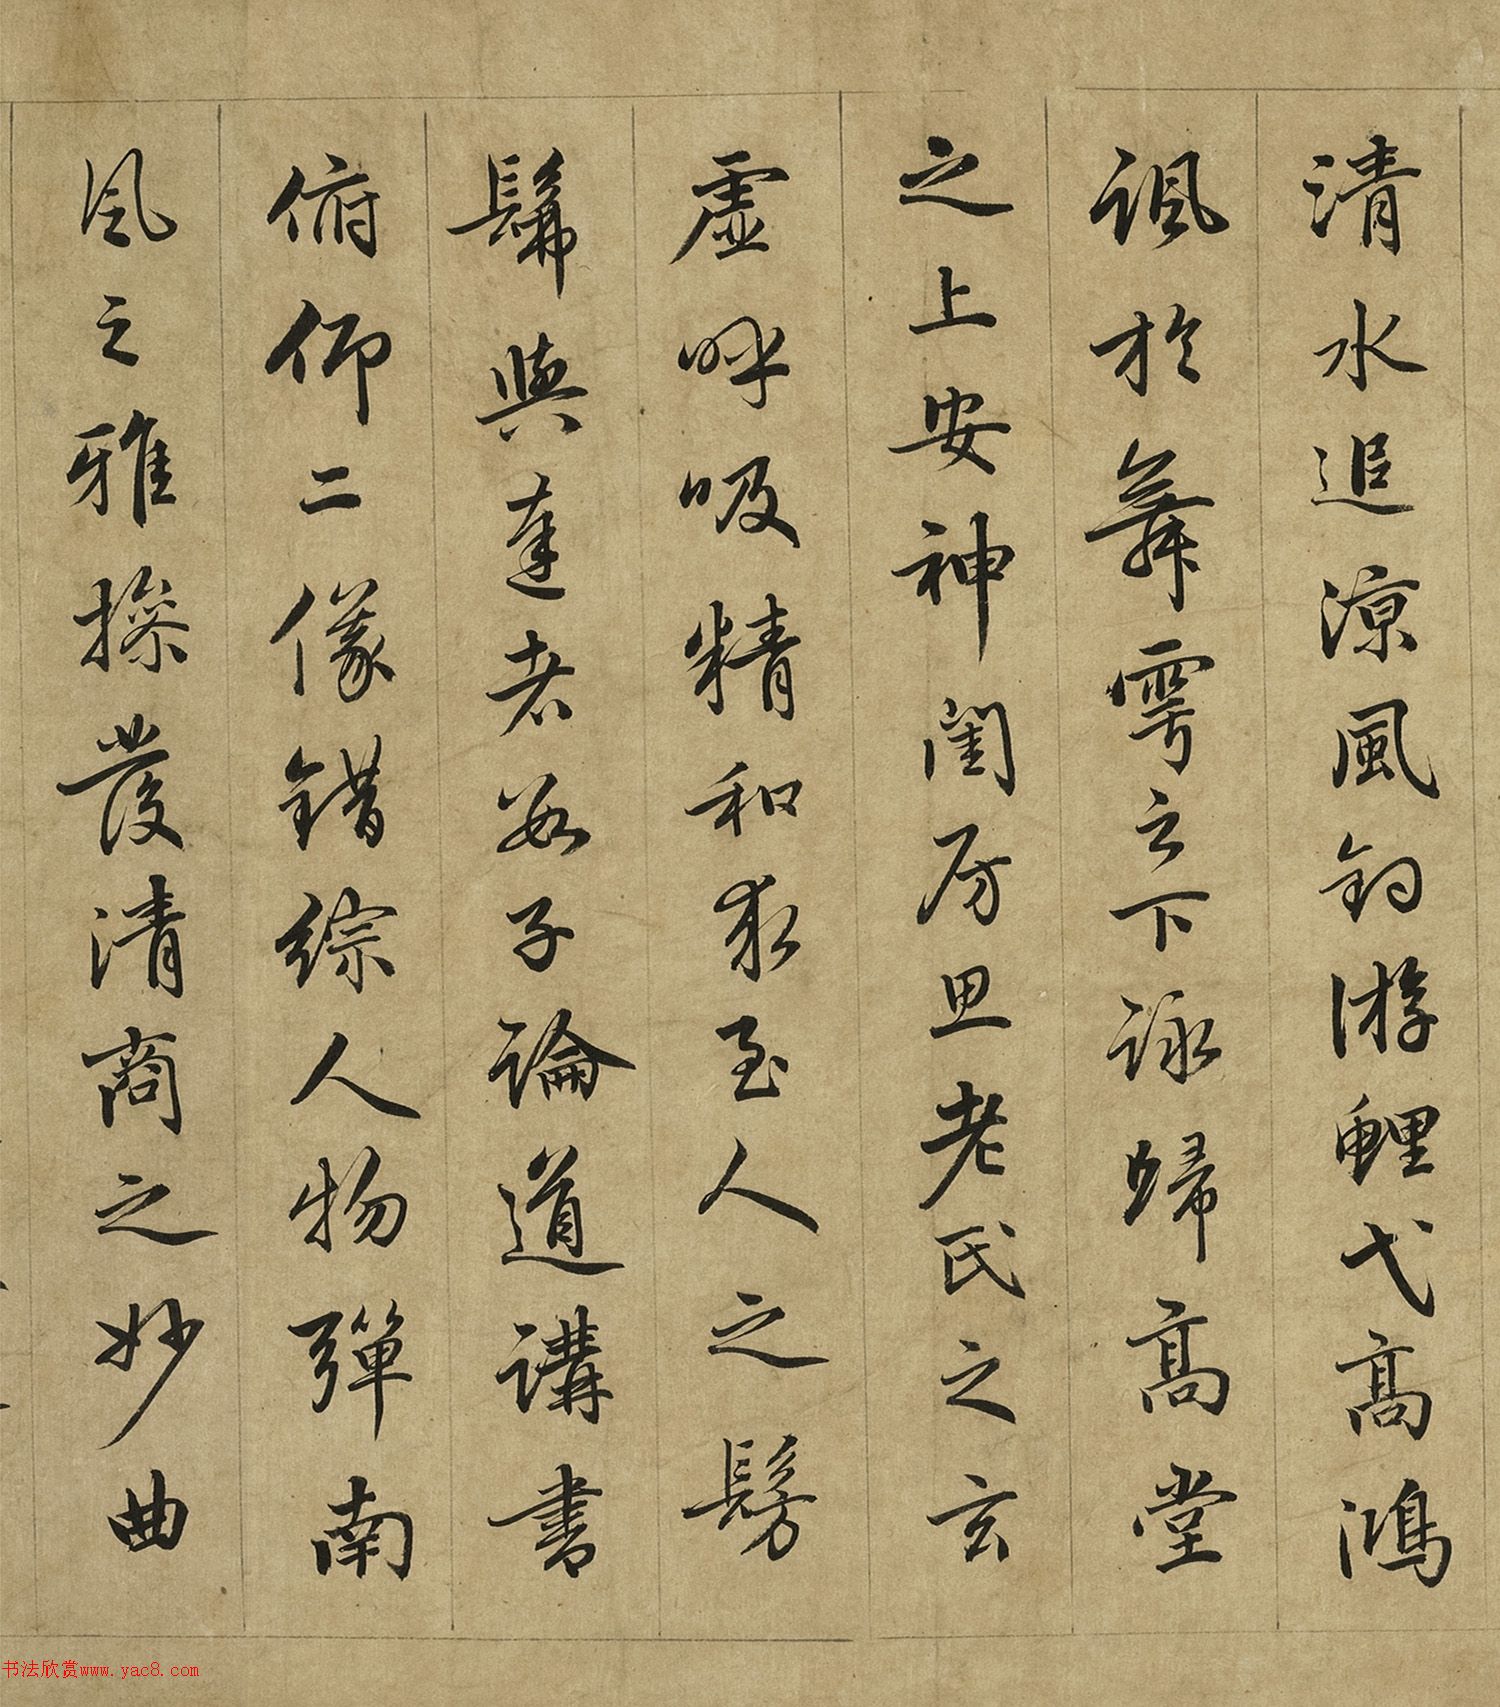 清水追涼風釣游鯉弋高鴻
諷於舞雩之下詠歸高堂
之上安神閨房思老氏之玄
虛呼吸精和求至人之髣
髴與達者數子論道講書
俯仰二儀錯綜人物彈南
風之雅操發清商之妙曲
书法欣赏www.yac8.com